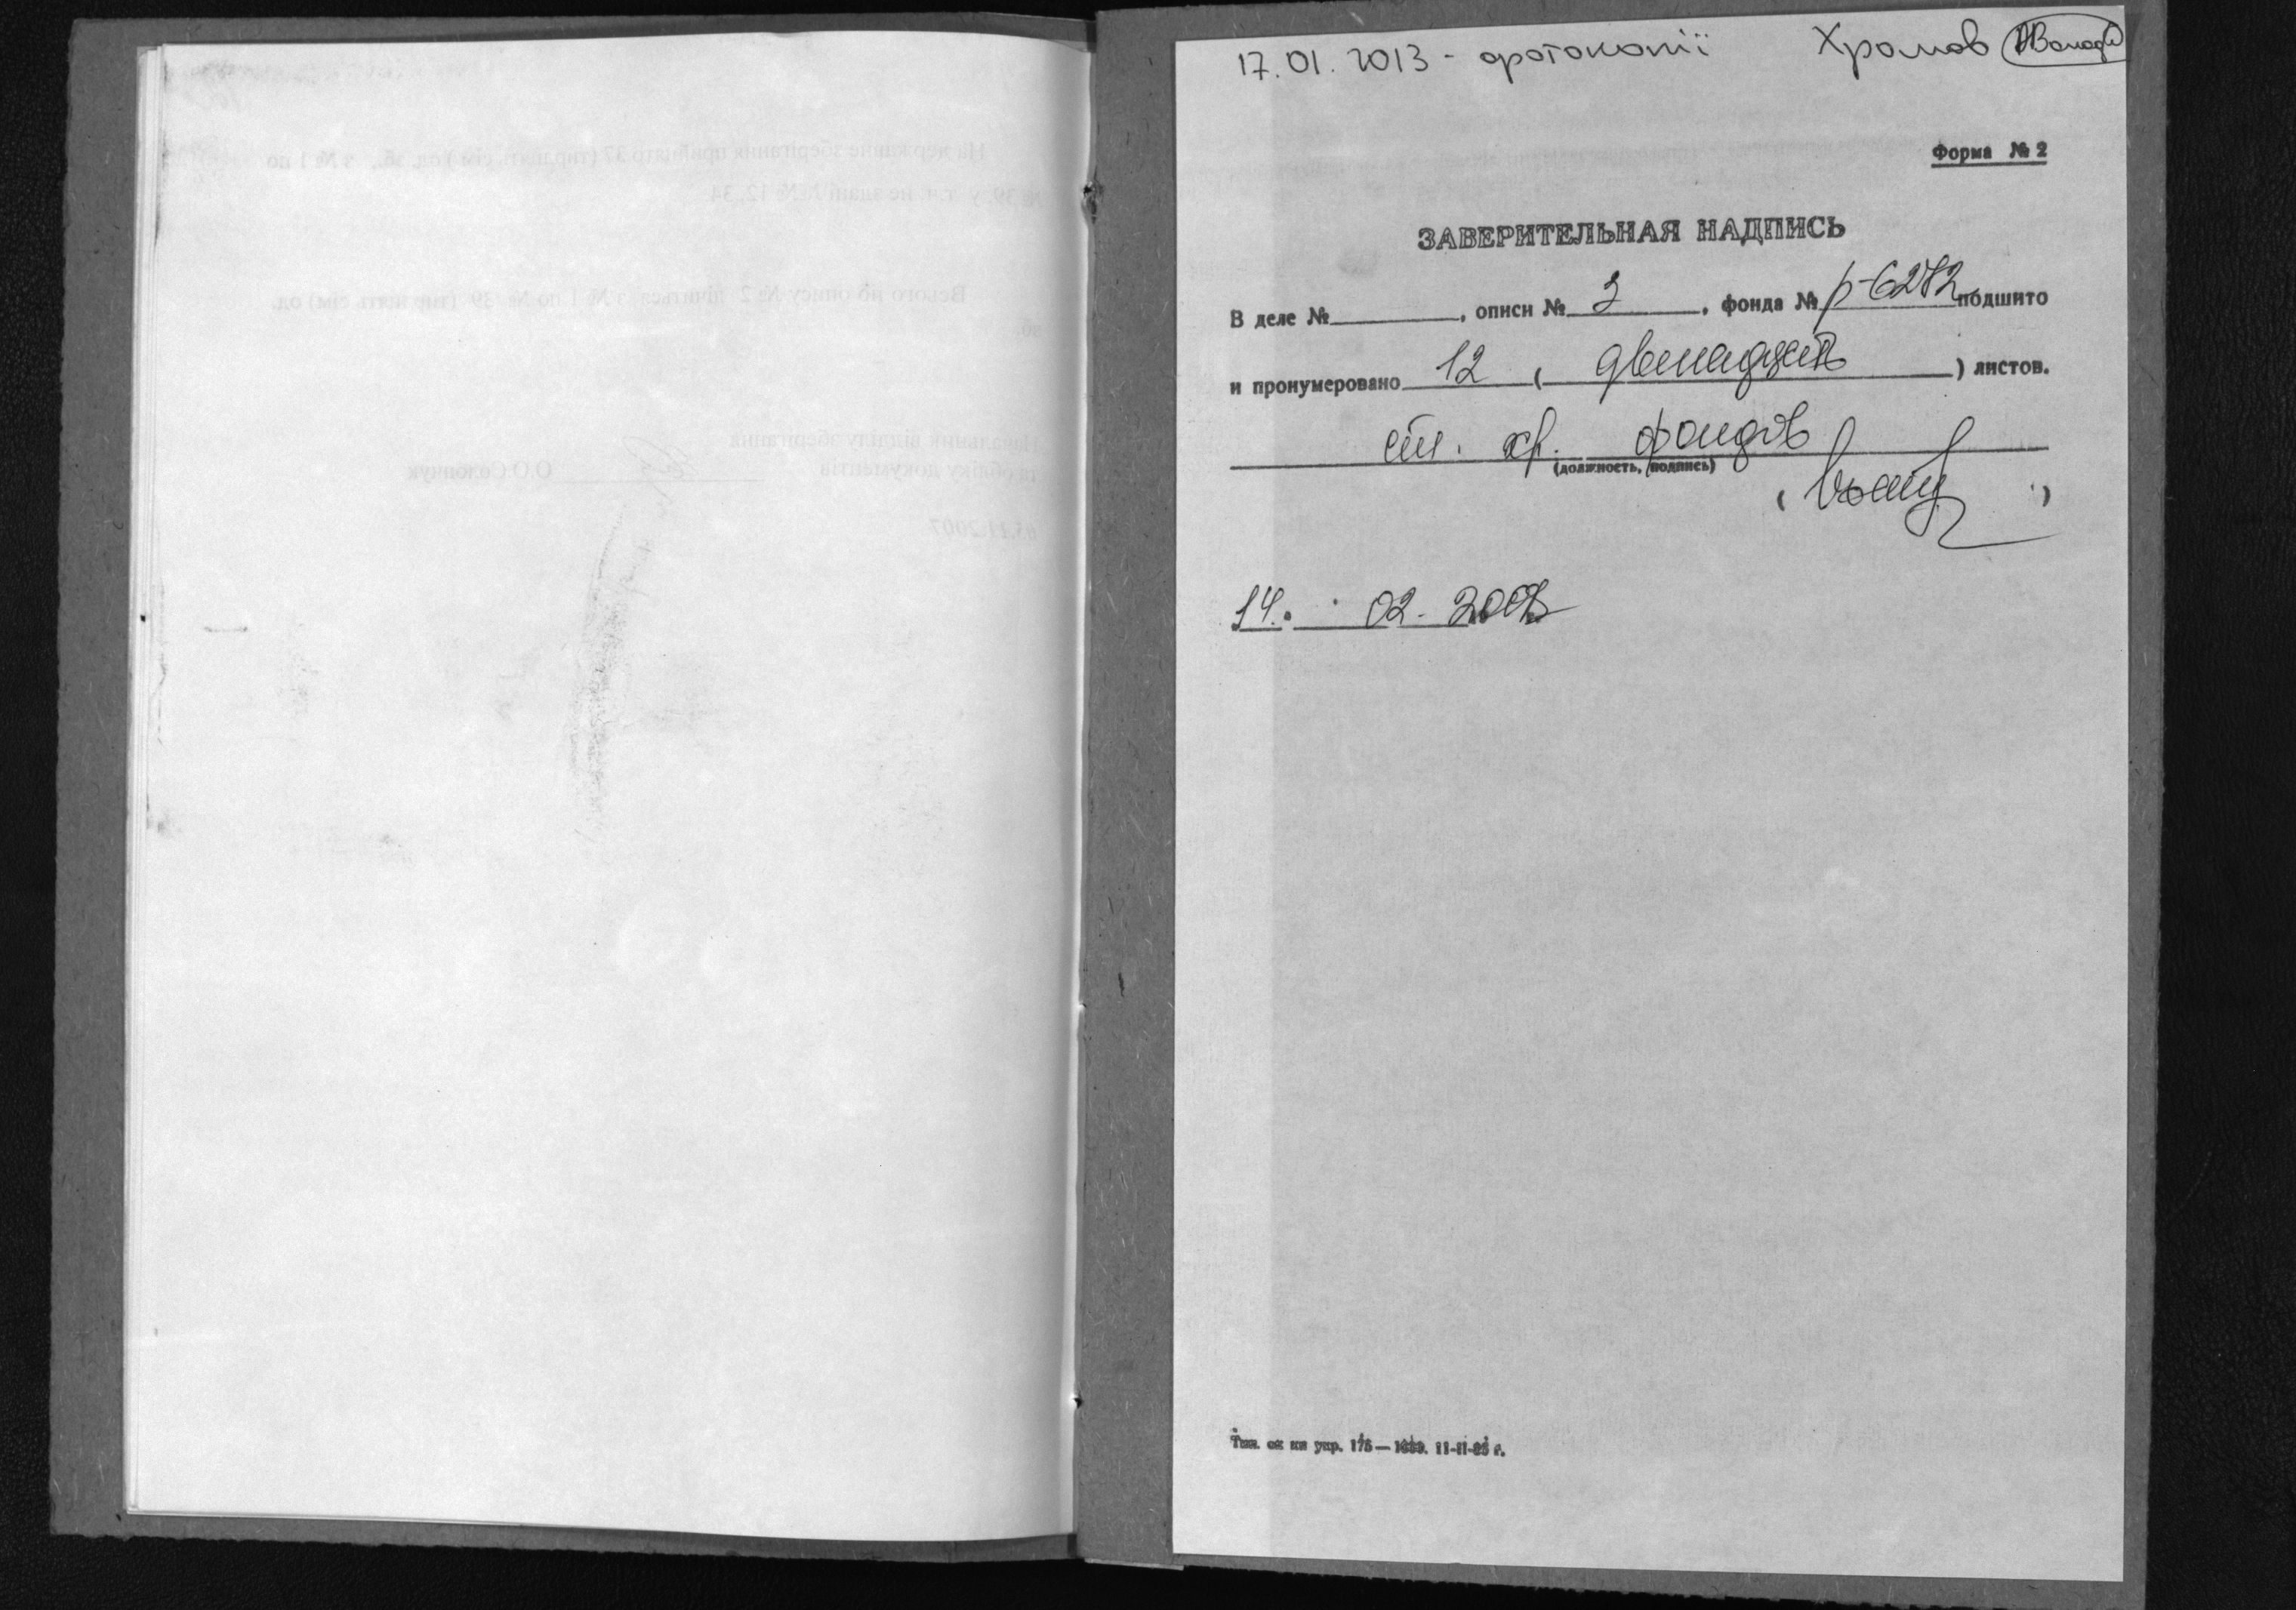 На державне зберігання прийнято 37 (тридцять сім) од. зб., з № 1 по
№ 39, у т.ч. не здані №№ 12, 34
Всього по опису № 2 лічиться з № 1 по № 39 (тридцять сім) од.
зб.
Начальник відділу зберігання
та обліку документів О.О.Соловчук
05.11.2007
17.01.2013 - фотокопії Хромов
Форма № 2
ЗАВЕРИТЕЛЬНАЯ НАДПИСЬ
В деле № , описи № , фонда № подшито
и пронумеровано 12 ( двенадцать ) листов.
ст. хр. фондов
(должность, подпись)
( )
14. 02.